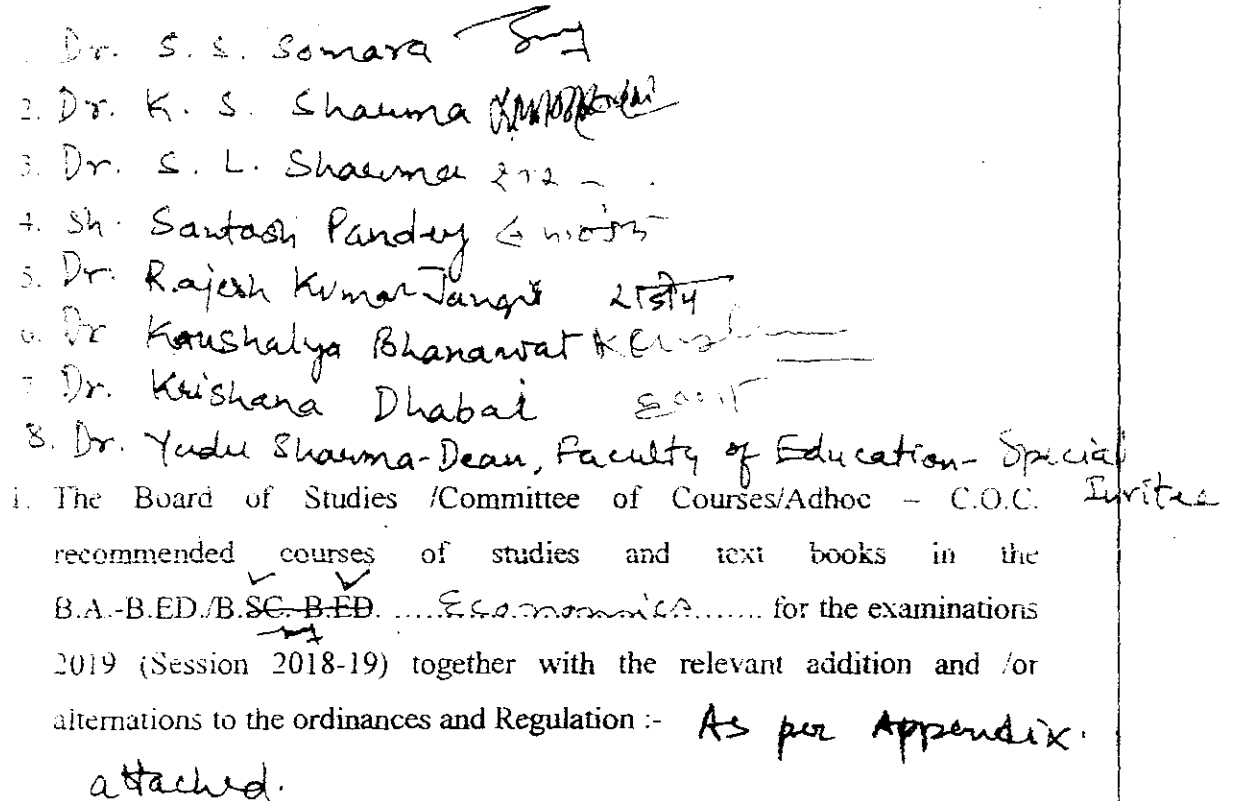 Dr. S. S. Somara
2. Dr. K. S. Sharma
3. Dr. S. L. Sharma
4. Sh. Santosh Pandey
5. Dr. Rajesh Kumar Jangir
6. Dr Kaushalya Bhanawat
7. Dr. Krishana Dhabai
8. Dr. Yadu Sharma-Dean, Faculty of Education- Special Invitee
1. The Board of Studies /Committee of Courses/Adhoc – C.O.C.
recommended courses of studies and text books in the
B.A.-B.ED./B.SC. B.ED. .....Economics....... for the examinations
2019 (Session 2018-19) together with the relevant addition and /or
alternations to the ordinances and Regulation :- As per Appendix.
attached.